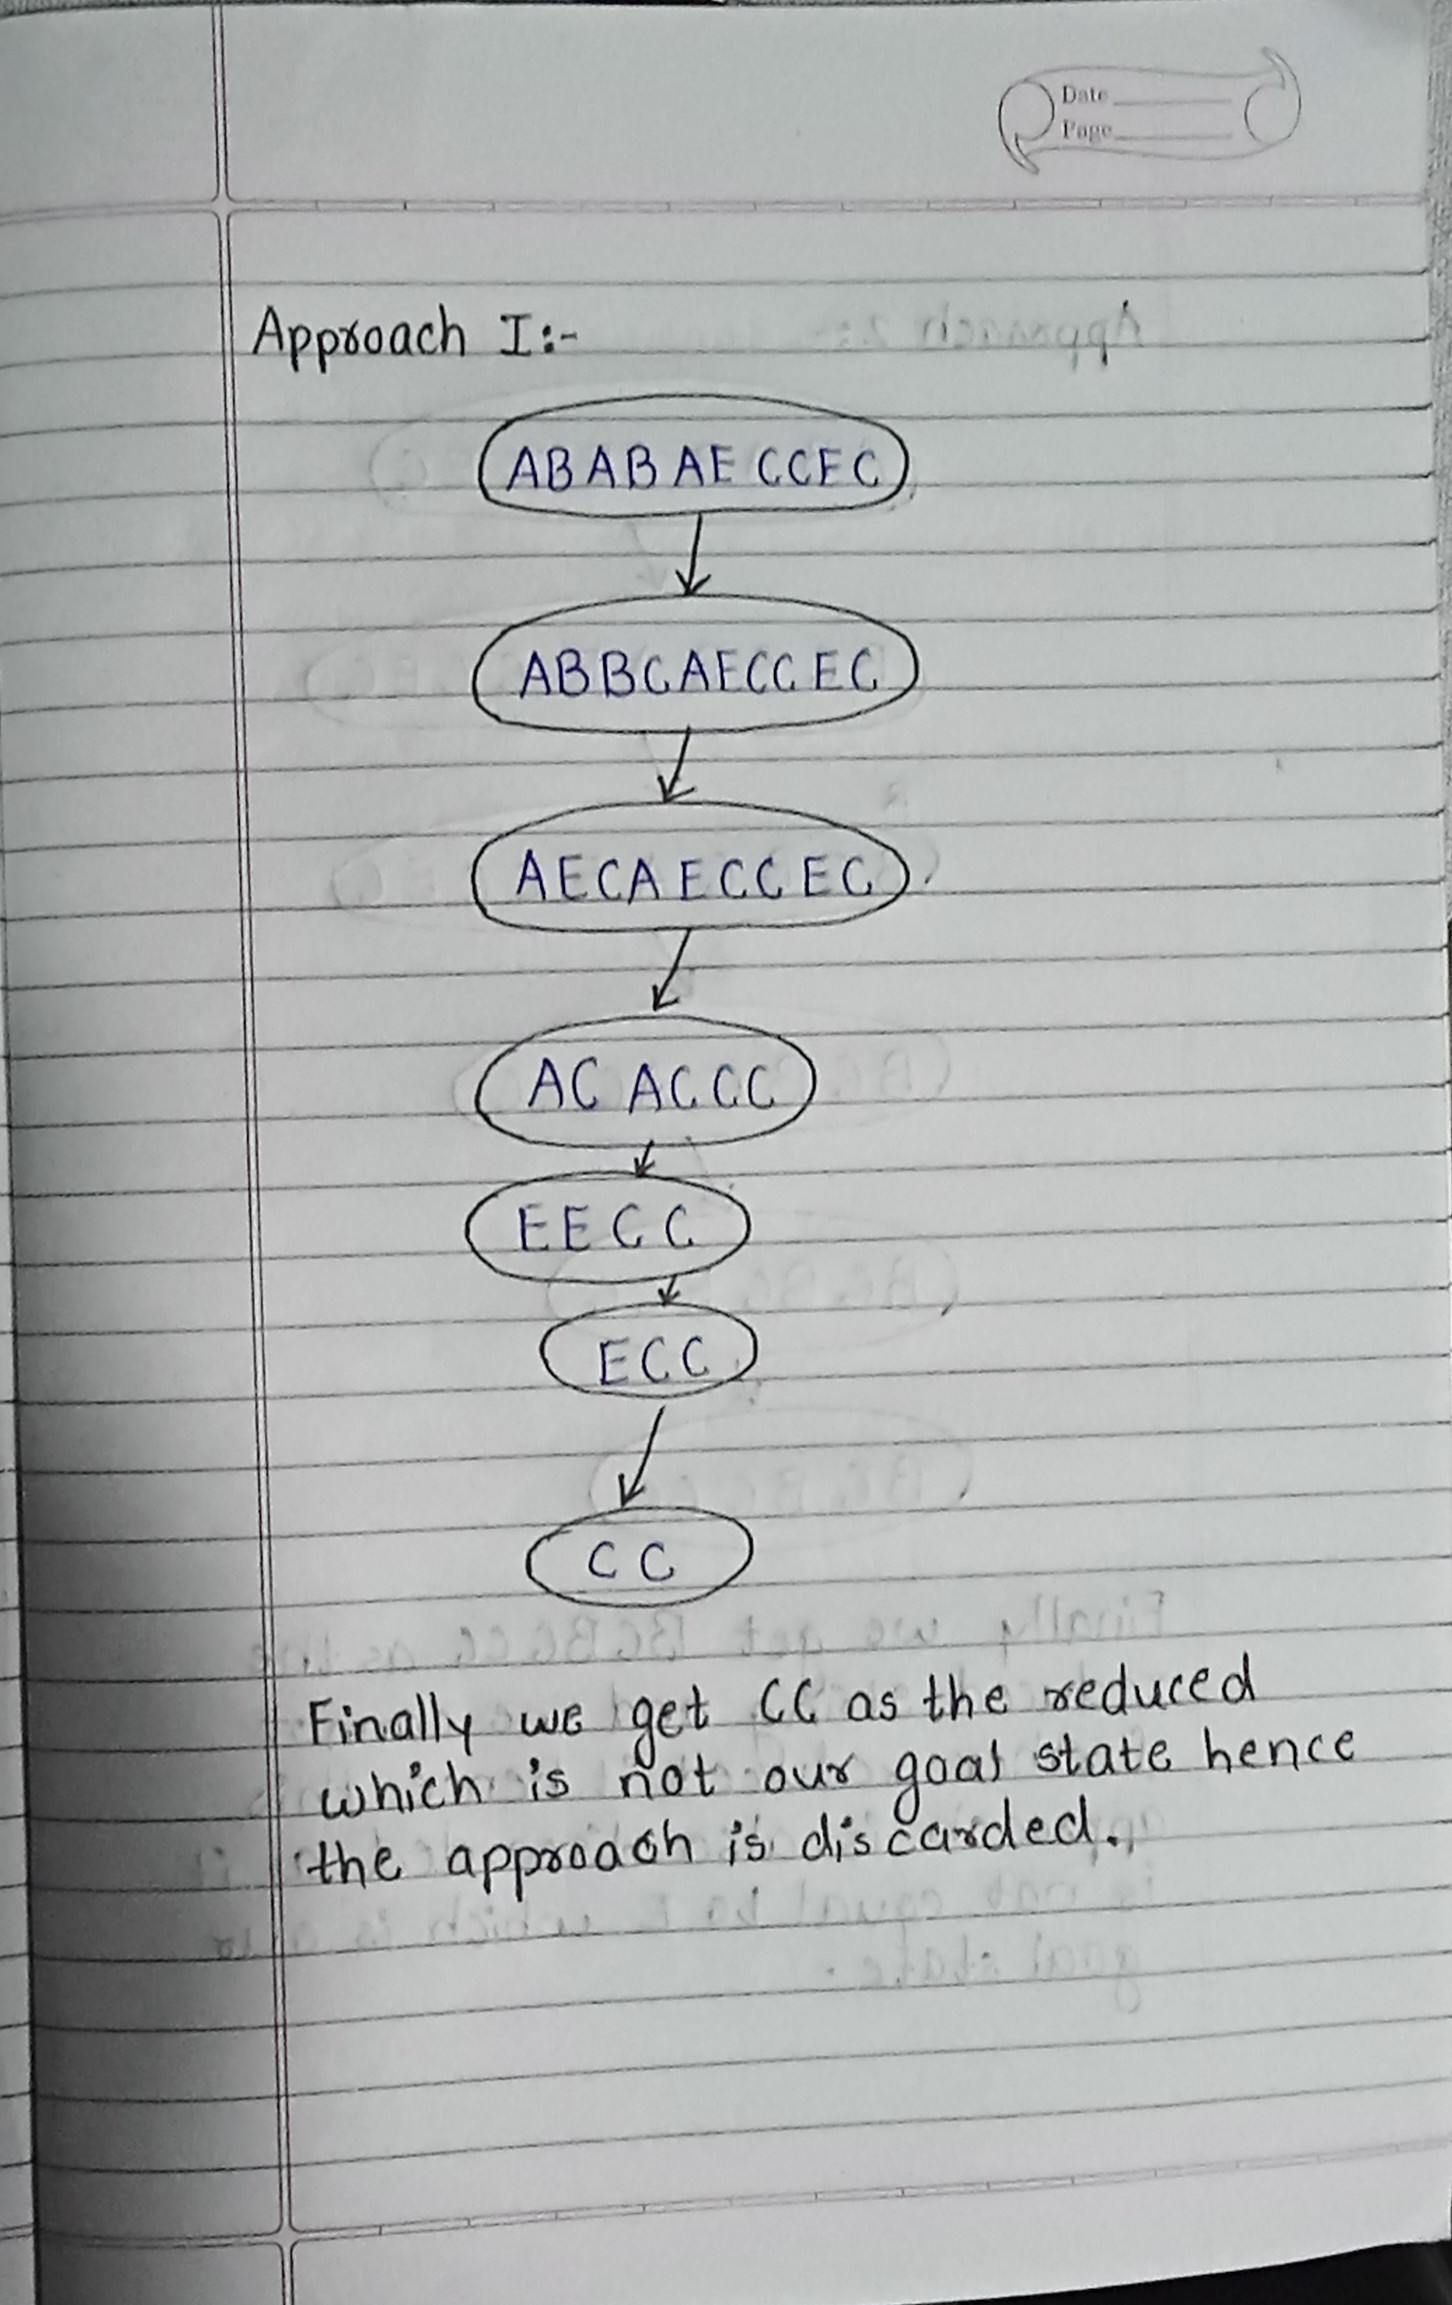 Date
Page
Approach I:-
ABABAECCEC
ABBCAECCEC
AECAECCEC
ACACCC
EECC
ECC
CC
Finally we get CC as the reduced
which is not our goal state hence
the approach is discarded.